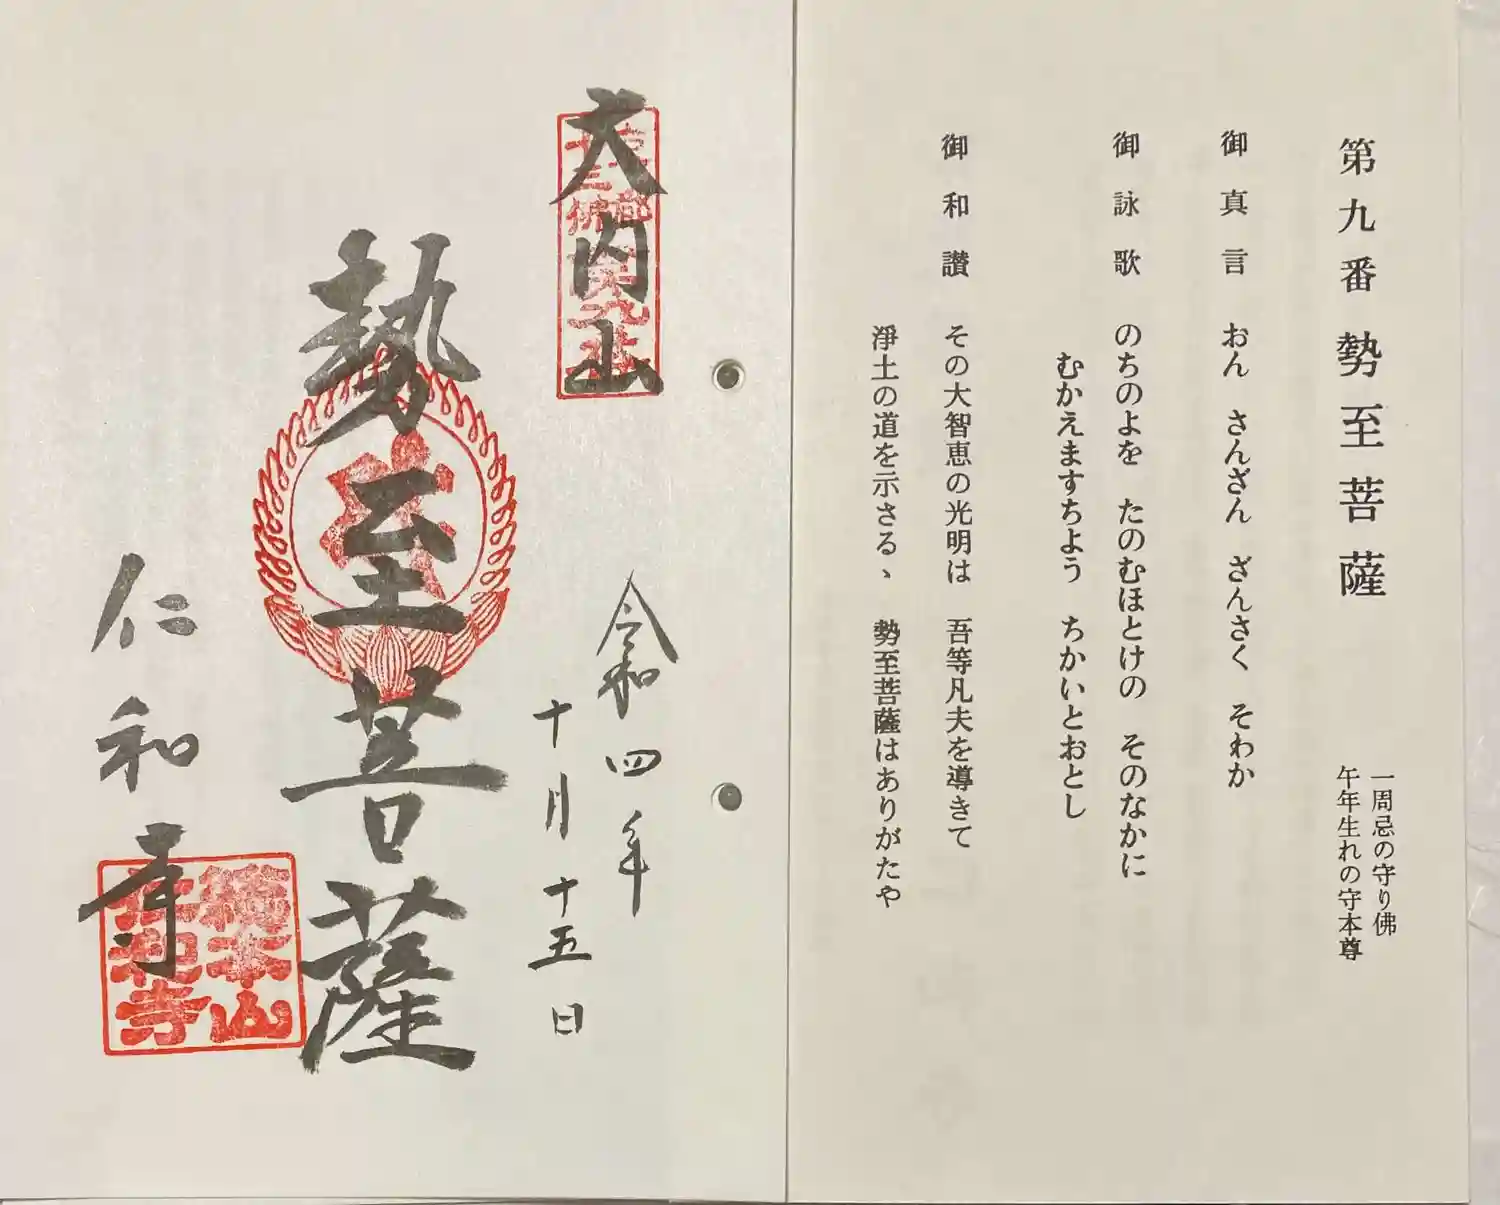 第九番 勢至菩薩
一周忌の守り佛
午年生れの守本尊
御真言 おん さんざん ざんさく そわか
御詠歌 のちのよを たのむほとけの そのなかに
むかえますちよう ちかいとおとし
御和讃 その大智恵の光明は 吾等凡夫を導きて
淨土の道を示さる、 勢至菩薩はありがたや
大内山
令和四年
十月十五日
勢至菩薩
仁和寺
総本山
仁和寺